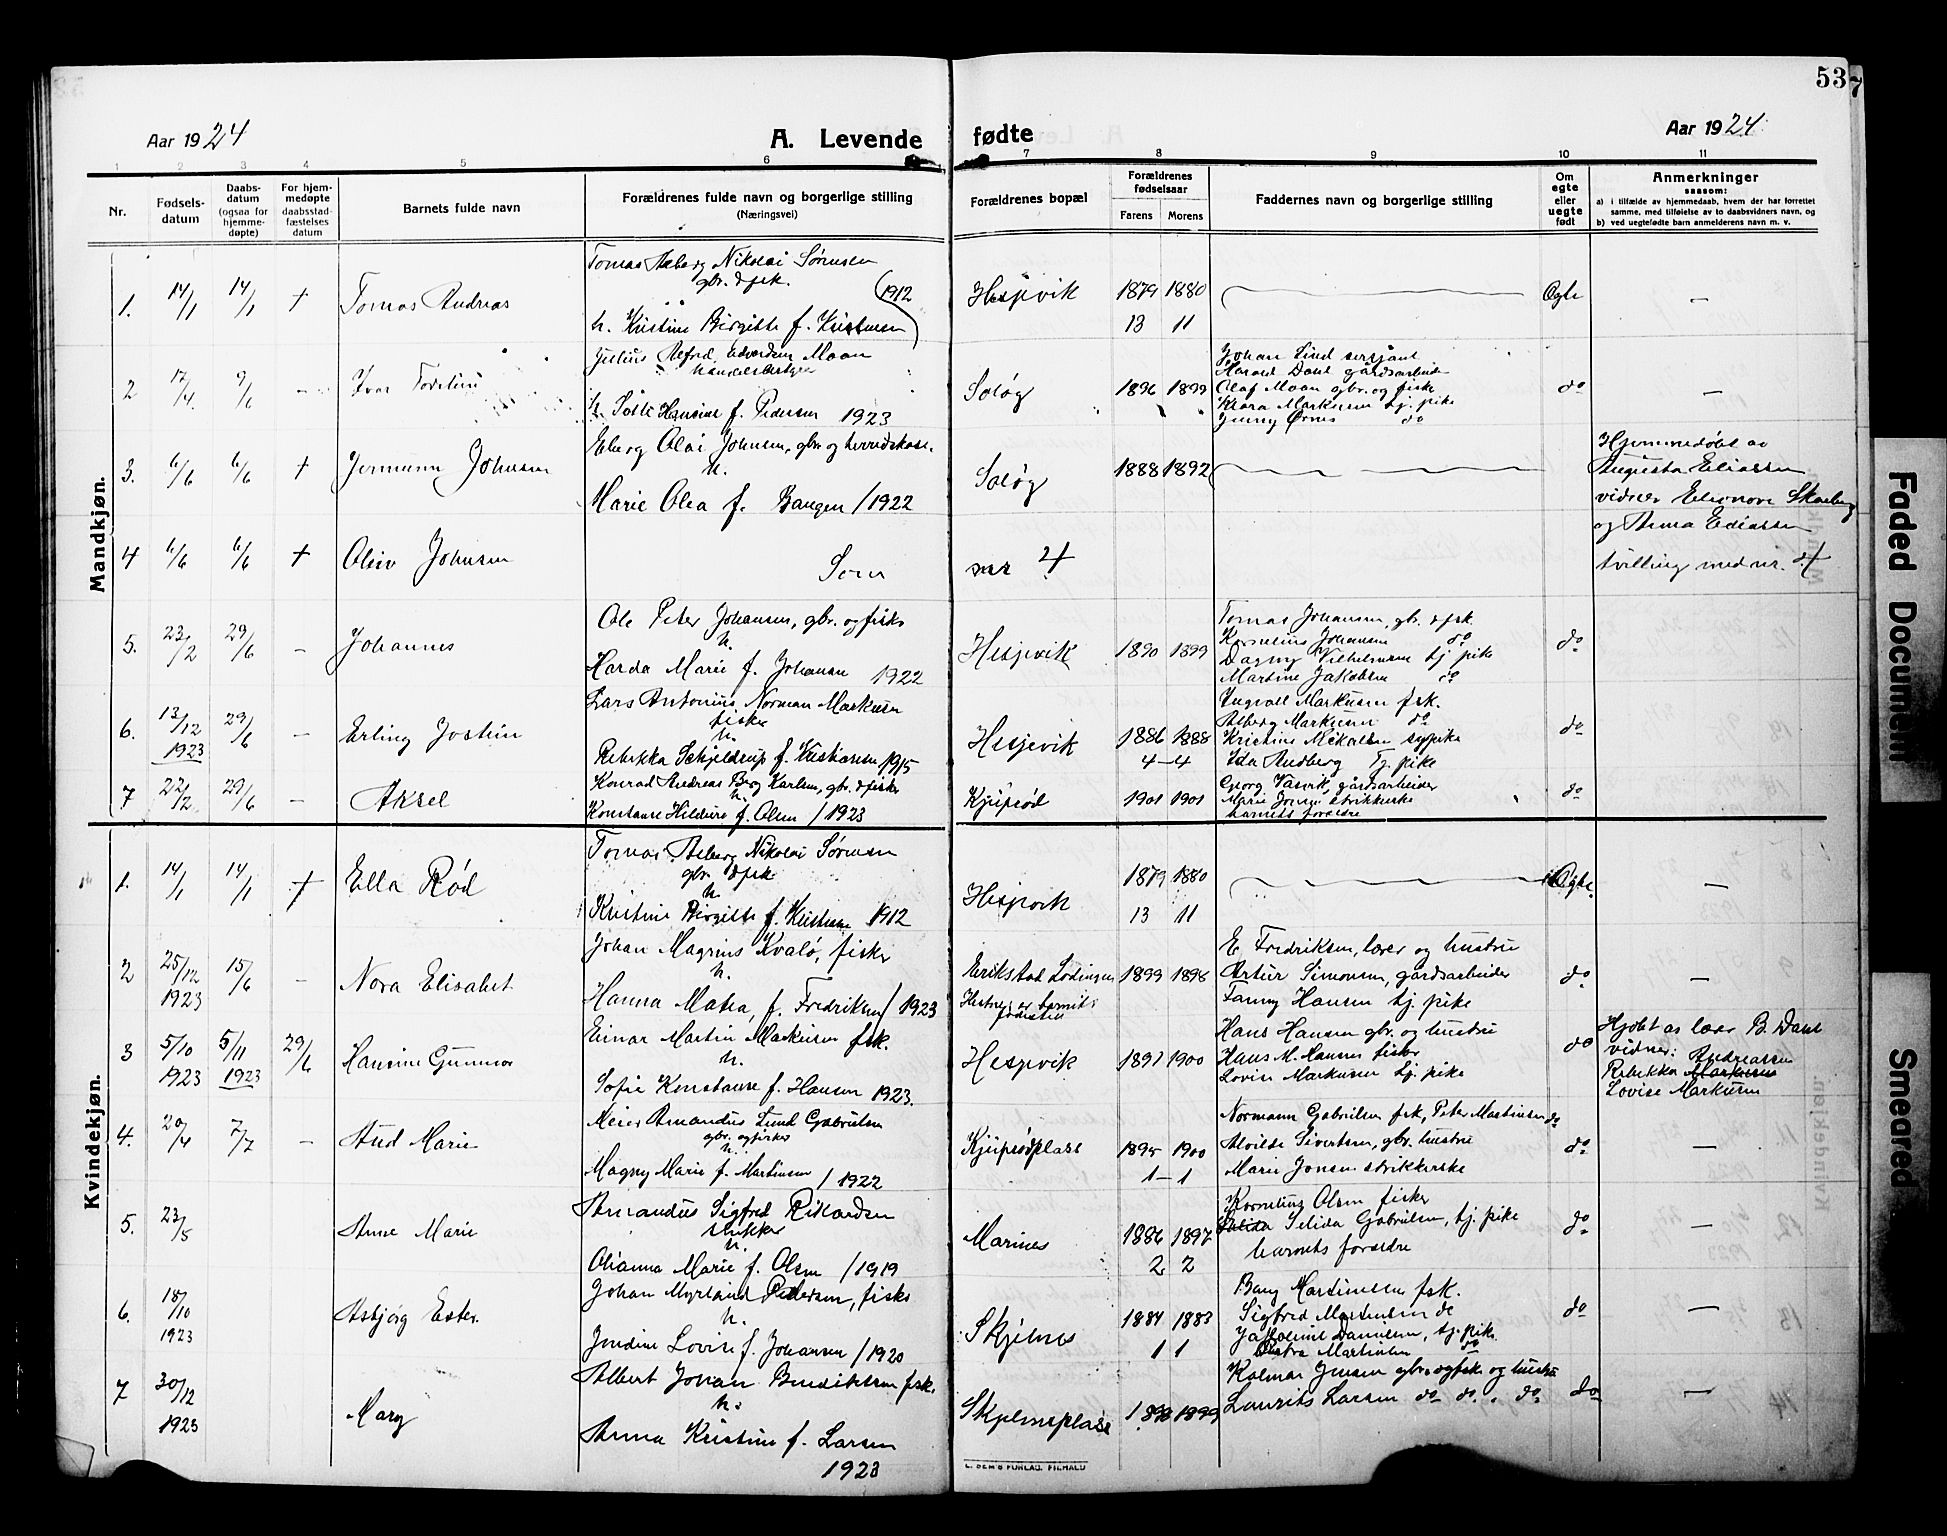 53
Aar 1924
A. Levende fødte
Aar 1924
1 2 3 4 5 6 7 8 9 10 11
Nr.
Fødsels-
datum
Daabs-
datum
(ogsaa for
hjemme-
døpte)
For hjem-
medøpte
daabsstad-
fæstelses
datum
Barnets fulde navn
Forældrenes fulde navn og borgerlige stilling
(Næringsvei)
Forældrenes bopæl
Forældrenes
fødselsaar
Farens Morens
Faddernes navn og borgerlige stilling
Om
egte
eller
uegte
født
Anmerkninger
saasom:
a) i tilfælde av hjemmedaab, hvem der har forrettet
samme, med tilføielse av to daabsvidners navn, og
b) ved uegtefødte barn anmelderens navn m. v.
Mandkjøn.
1. 14/1 14/1 + Tomas Andreas
Tomas Aaberg Nikolai Sørensen
gbr. & fsk. (1912
h. Kristine Birgitte f. Kristensen
Hesjevik 1879 1880
13 11
Ægte —
2 17/4. 9/6 – Ivar Torstein
Julius Alfred Edvardsen Moan
h. Hansine f. Pedersen 1923
Soløy 1896 1899
Johan Lind sersjant
Harald Dahl gårdsarbeider
Olaf Moan gbr. og fisker
Klara Markusen tj. pike
Jenny Ørnes do
do —
3. 6/6 6/6 + Jermann Johnsen
Eberg Olai Johnsen, gbr. og herredskass.
h.
Marie Olea f. Bangen / 1922
Soløy 1888 1892
Hjemmedøbt av
Augusta Eliassen
vidner Elionore Skarberg
og Anna Eliassen
4 6/6 6/6 + Oliv Johnsen
Som nr 4
tvilling med nr. 4
5. 23/2 29/6 – Johannes
Ole Peter Johansen, gbr. og fisker
h.
Harda Marie f. Johansen 1922
Hesjevik 1890 1899
Tomas Johansen, gbr. & fsk.
Kornelius Johansen do
Dagny Vilhelmsen tj. pike
Martine Jakobsen do
do
6. 13/12 1923 29/6 – Erling Jostein
Lars Antonius Norman Markusen
fisker
h.
Rebekka Schjeldrup f. Kristiansen 1915
Hesjevik 1886 1888
4 – 4
Ingvall Markusen fsk.
Alberg Markusen do
Kristine Mikalsen sypike
Ida Rudberg Tj. pike
do
7 22/2 29/6 – Aksel
Konrad Andreas Berg Karlsen, gbr. & fisker
h.
Konstanse Hildure f. Olsen / 1923
Kjøpsød 1901 1901
Georg Vasvik, gårdsarbeider
Marie Jonsen strikkerske
barnets forældre
do
Kvindekjøn.
1. 14/1 14/1 + Ella Rød
Tomas Aaberg Nikolai Sørensen
gbr. & fsk
h.
Kristine Birgitte f. Kristensen 1912
Hesjevik 1879 1880
13 11
Ægte. —
2 25/12 1923 15/6 – Nora Elisabet
Johan Magnus Kvalø, fisker
h.
Hanna Matea, f. Fredriksen / 1923
Erikstad Lødingen 1899 1898
E Fredriksen, lærer og hustru
Artur Simonsen, gårdsarbeider
Fanny Hansen tj. pike
do —
3 5/10 1923 5/11 1923 29/6 Hansine Gunnvor
Einar Martin Markusen fsk.
h.
Sofie Konstanse f. Hansen 1923.
Hesjevik 1897 1900
Hans Hansen gbr. og hustru
Hans M. Hansen fisker
Lovise Markusen tj. pike
do
Hjdøbt av lærer B. Dahl
vidner: Andreassen
Rebekka Markusen
Lovise Markusen
4. 20/4 7/7 – Aud Marie
Meier Amandus Lund Gabrielsen
gbr. og fisker
h.
Magny Marie f. Martinsen / 1922
Kjøpsødplass 1895 1900
1 – 1
Normann Gabrielsen fsk, Peter Martinsen do
Alvilde Sivertsen, gbr. hustru
Marie Jonsen strikkerske
do —
5. 23/5 Anne Marie
Amandus Sigfred Rikardsen
h.
Olianna Marie f. Olsen / 1919
Marines 1886 1897
2 2
Kornelius Olsen fisker
Selida Gabrielsen, tj. pike
barnets forældre
do —
6. 18/10 1923 Asbjørg Ester
Johan Myrland Pedersen, fisker
h.
Jendine Lovise f. Johansen / 1920
Skjelnes 1884 1883
1 1
Berg Martinussen fsk.
Sigfred Martinsen do
Jakobine Danielsen, tj. pike
Martinsen do
do —
7 30/12 1923 Mary
Albert Johan Bendiktsen fsk.
h.
Anna Kristine f. Larsen
1923
Skjelnesplass 1898 1899
Kolmar Jensen gbr. og fsk. og hustru
Laurits Larsen do do. " do
do —
E. SEM'S FORLAG, F.HALD
Faded Document
Smeared